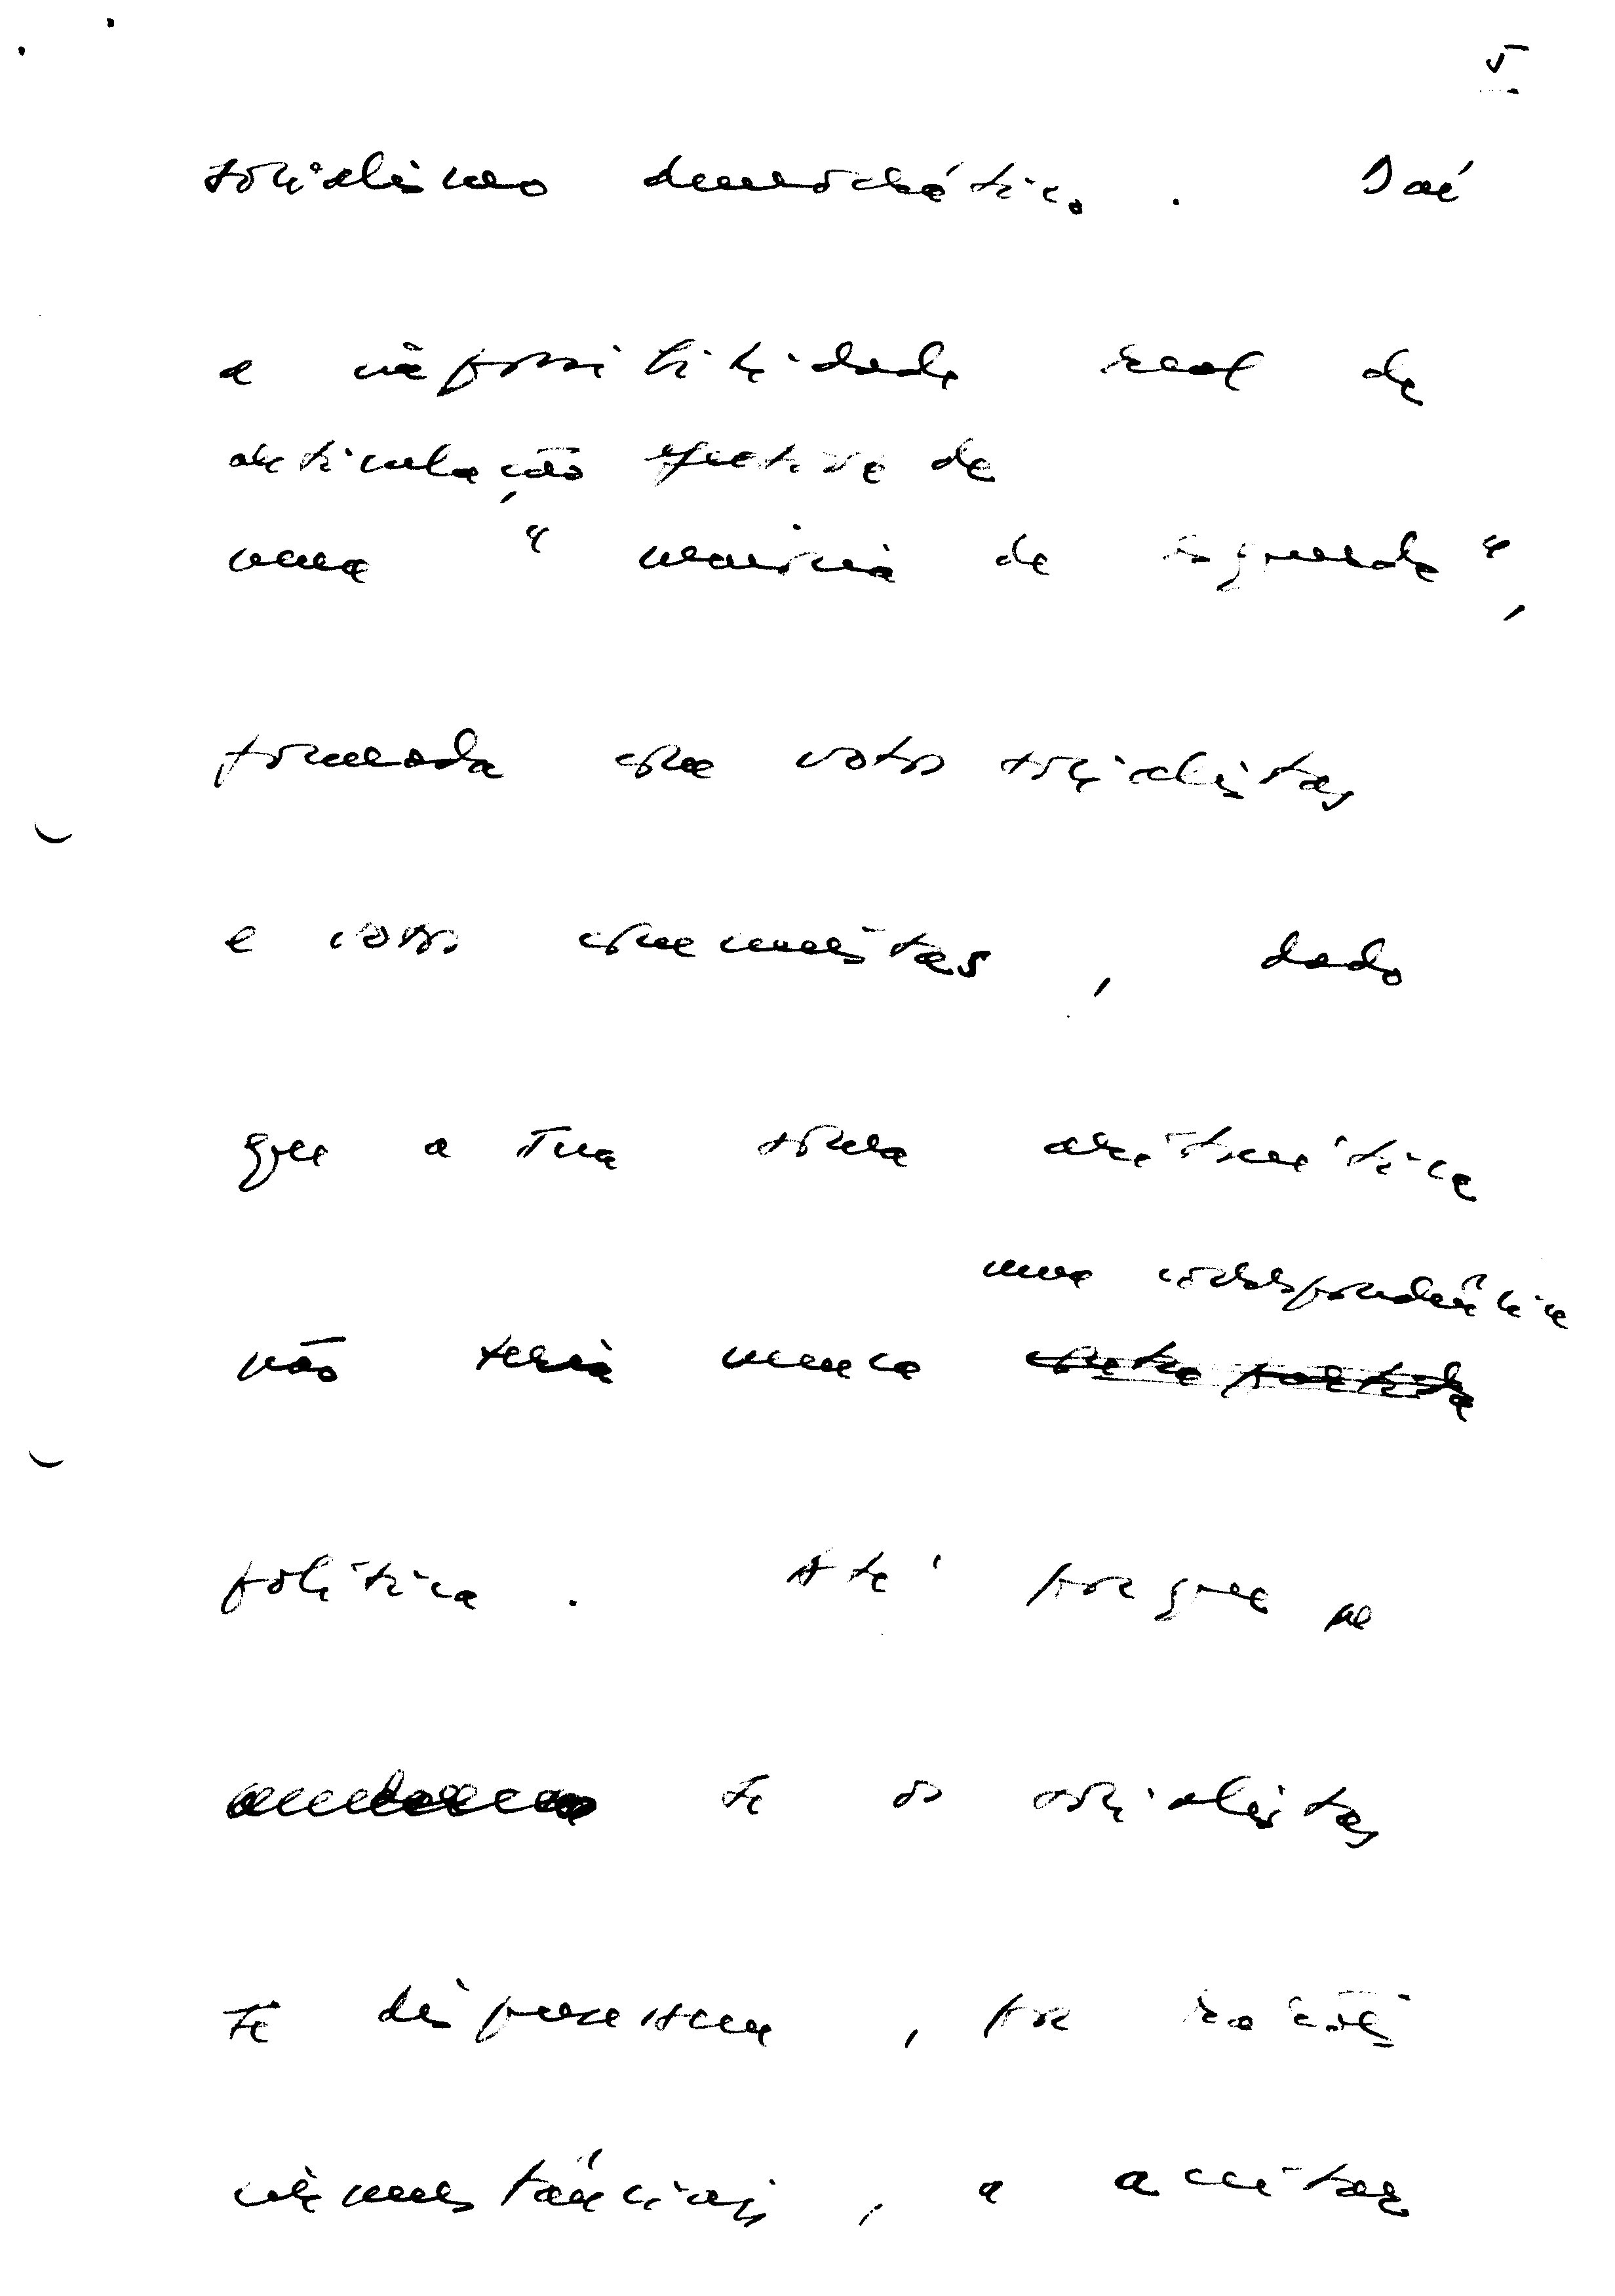 5
socialismo democrático. Daí
a impossibilidade real de
articulação efectiva de
uma "maioria de esquerda",
formada com votos socialistas
e votos comunistas, dado
que a sua soma aritmética
uma correspondência
não teria nunca
política. Até porque
se os socialistas
se dispusessem, por razões
circunstanciais, a aceitar